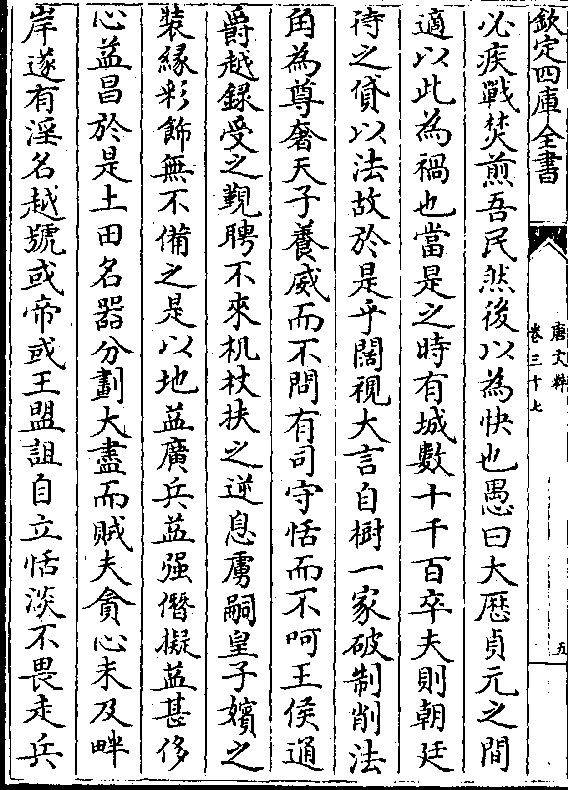 欽定四庫全書
唐文粹
卷三十七
五
必疾戰焚煎吾民然後以為快也愚曰大厯貞元之間
適以此為禍也當是之時有城數十千百卒夫則朝廷
待之貸以法故於是乎闊視大言自樹一家破制削法
角為尊奢天子養威而不問有司守恬而不呵王侯通
爵越錄受之覲聘不來机杖扶之逆息虜嗣皇子嬪之
裝緣彩飾無不備之是以地益廣兵益强僭擬益甚侈
心益昌於是土田名器分劃大盡而賊夫貪心未及畔
岸遂有淫名越號或帝或王盟詛自立恬淡不畏走兵